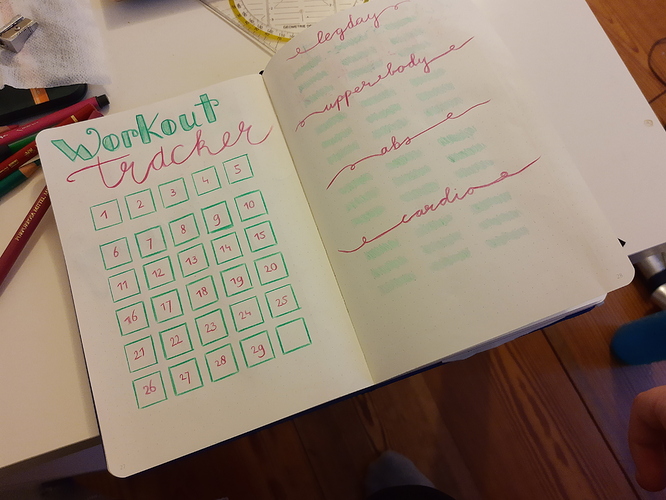 Workout
tracker
1 2 3 4 5
6 7 8 9 10
11 12 13 14 15
16 17 18 19 20
21 22 23 24 25
26 27 28 29
legday
upperbody
abs
cardio